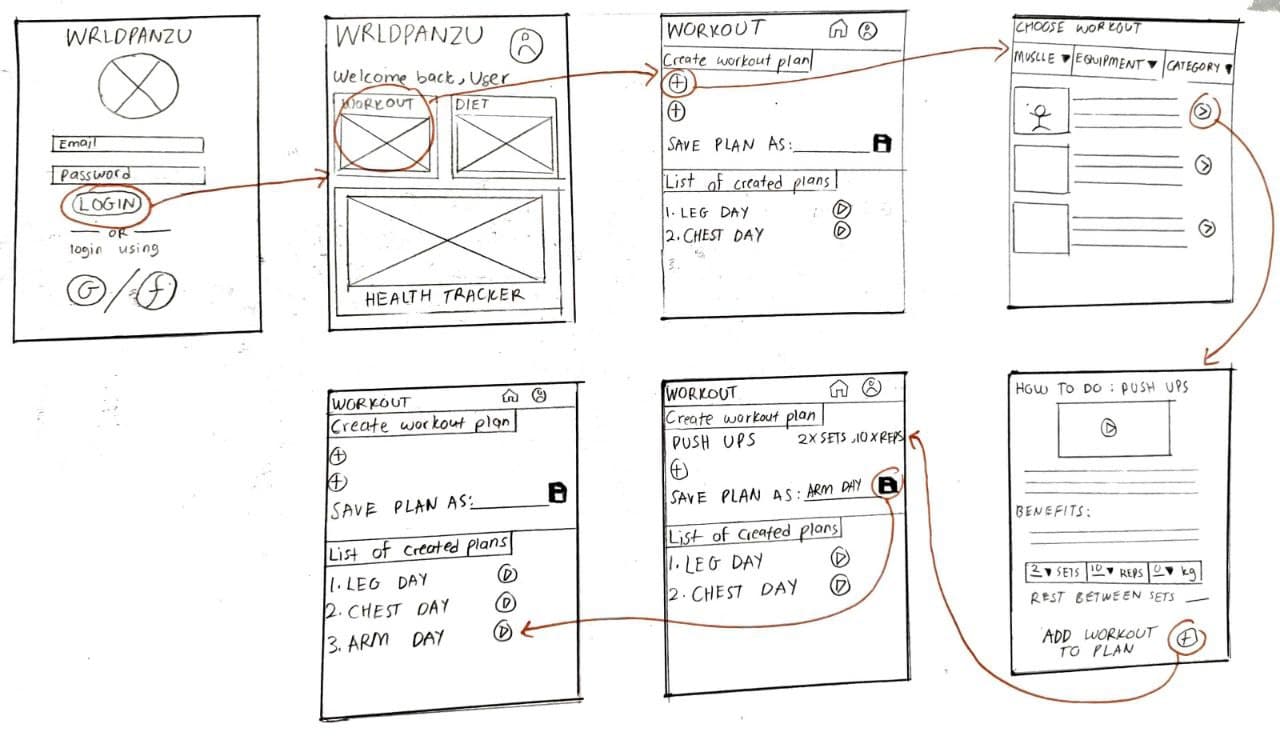 WRLDPANZU
Email
Password
LOGIN
OR
login using
G / f
WRLDPANZU
Welcome back, User
WORKOUT
DIET
HEALTH TRACKER
WORKOUT
Create workout plan
SAVE PLAN AS:
List of created plans
1. LEG DAY
2. CHEST DAY
3.
CHOOSE WORKOUT
MUSCLE ▼ EQUIPMENT ▼ CATEGORY ▼
HOW TO DO : PUSH UPS
BENEFITS:
2 ▼ SETS 10 ▼ REPS 0 ▼ kg
REST BETWEEN SETS __
ADD WORKOUT
TO PLAN
WORKOUT
Create workout plan
PUSH UPS 2X SETS, 10 X REPS
SAVE PLAN AS: ARM DAY
List of created plans
1. LEG DAY
2. CHEST DAY
WORKOUT
Create workout plan
SAVE PLAN AS:
List of created plans
1. LEG DAY
2. CHEST DAY
3. ARM DAY